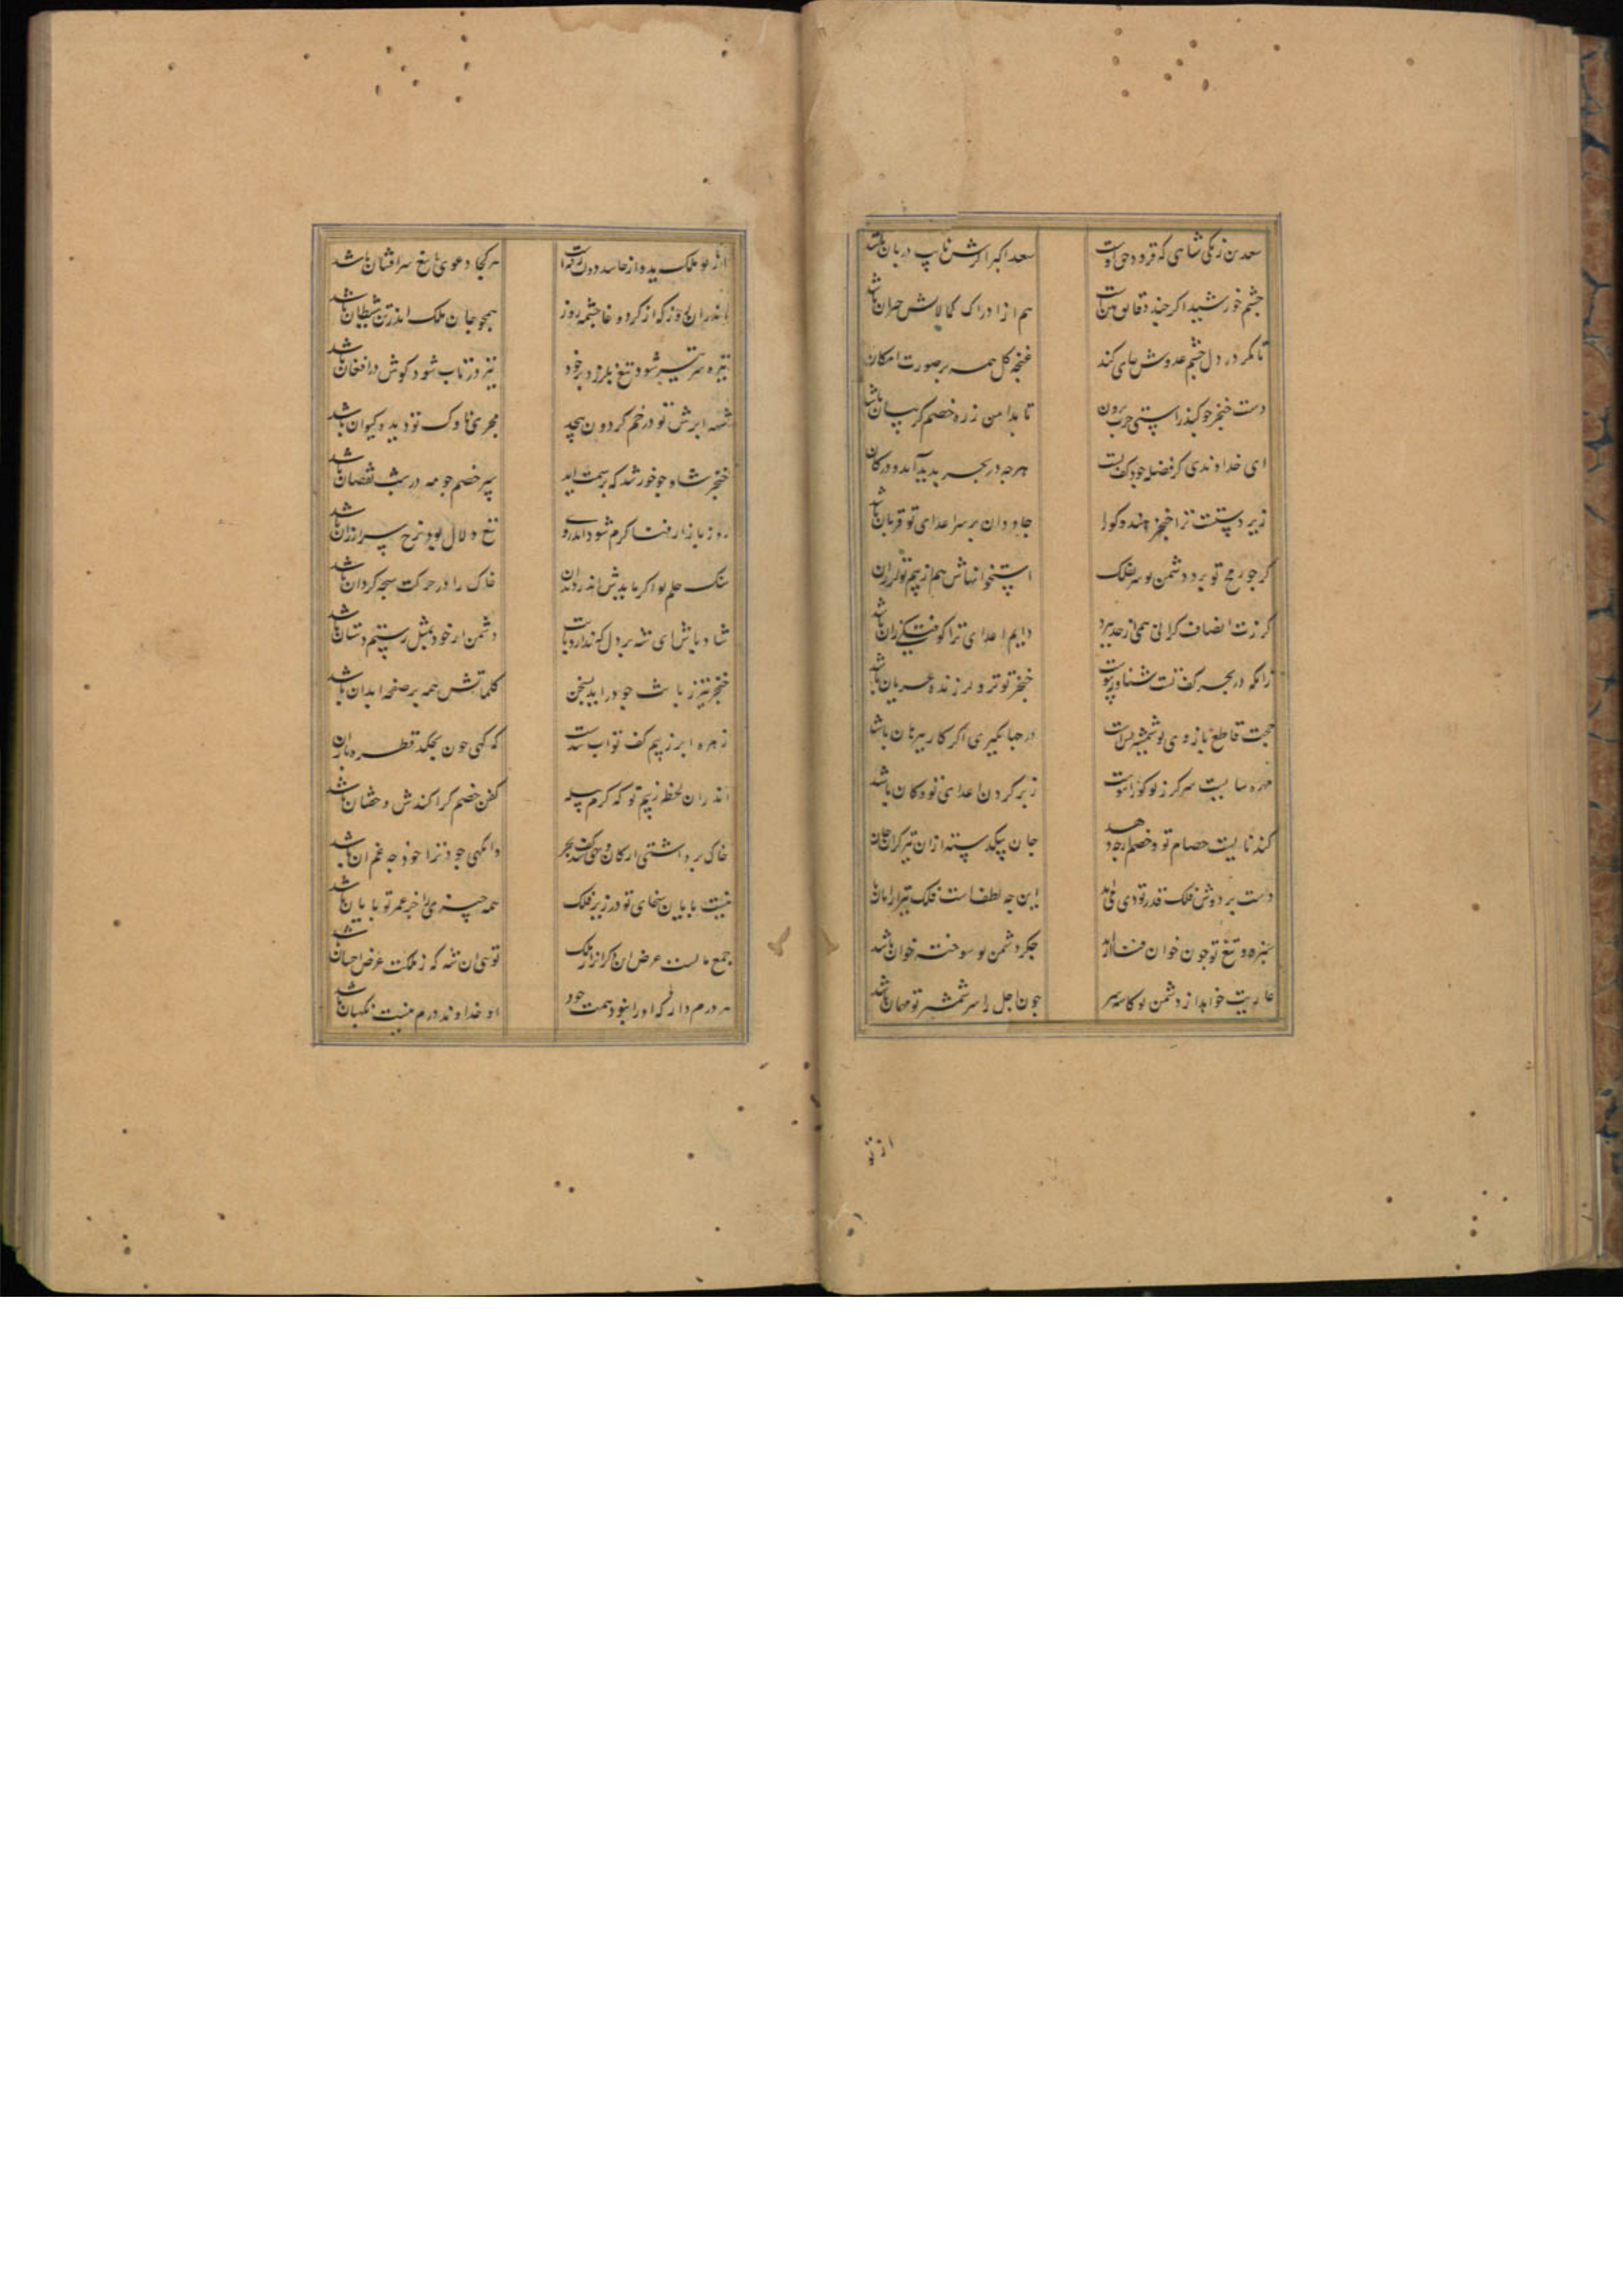 سعد بن زنکی شاهی که فرود حق اوست
سعد اکبر اکرش نایب دربان باشد
جشم خورشید اکر جند دقایق بین است
هم از ادراک کمالاش حیران باشد
تا مکر در دل خشم عدوش جای کند
غنجه کل همه بر صورت امکان
دست خنجر جو کند راستی جرب برون
تا بدامن زره خصم کریبان باشد
ای خداوندی کز فضله جود کف تست
هرجه در بحر بدید آمد و در کان
زیر دستت ترا خنجر هندو کو را
جاودان بر سر اعدای تو قربان باشد
کرجو رمح تو برد دشمن تو سر بفلک
استخوانهاش هم از بیم تو لرزان
کرزت انصاف کرانی همی از حد ببرد
دایم اعدای ترا کوفتکی زان باشد
زانکه در بحر کف تست شناور بیوست
خنجر تو تر و لرزنده عریان باشد
حجت قاطع بازوی تو شمشیر بس است
در جهانکیری اکر کار ببرهان باشد
سر کرز تو کوراست
زیر کردن اعدای تو و کان باشد
کندناییست حسام تو و خصم ار جه دهد
جان ببکدسته ازان تیز کران جان
دست بر دوش فلک قدر تو دی می‌آمد
این جه لطفست فلک
سبزه و تیغ تو جون خوان
جکر دشمن تو سوخته خوان باشد
عاریت خواهد از دشمن تو کاسه سر
جون اجل را سر شمشیر تو مهمان باشد
از تو
از تو ملک بد و از حاسد دون
هر کجا دعوی با تیغ سرافشان باشد
اندران روز که از کرد وغا جشمه روز
همجو جان ملک اندر تن شیطان باشد
نیزه سرتیز شود تیغ بلرزد بر خود
نیز در تاب شود کوش در افغان باشد
شهه ابرش تو در خم کردون بیجد
مجری ناوک تو دیده کیوان باشد
خنجر شاه جو خورشید که بر سمت آید
سبر خصم جو مه در شب نقصان باشد
روز بازار فنا کرم شود اندر وی
تیغ دلال بود نرخ سر ارزان باشد
سنک حلم تو اکر
خاک را در حرکت سبحه کردان باشد
شاد باش ای شه بر دل که ندارد بایت
دشمن ار خود بمثل رستم دستان باشد
خنجر تیز زبانت جو در آید بسخن
کلماتش همه بر صفحه ابدان باشد
زهره ابر ز بیم کف تو آب شدست
که کهی خون بجکد قطره باران
اندران لحظه ز بیم تو که کرم بیله
کفن خصم کژاکندش و خفتان باشد
خاک برداشتی از کان و
وانکهی جود ترا خود جه غم آن باشد
نیست بایان سخای تو در زیر فلک
همه جیزی بجز عمر تو بایان باشد
جمع مالست غرض آن دکران را از ملک
تویی آن شه که ز ملکت غرض احسان باشد
هر درم دار که او را نبود همت جود
او خداوند درم نیست نکهبان باشد